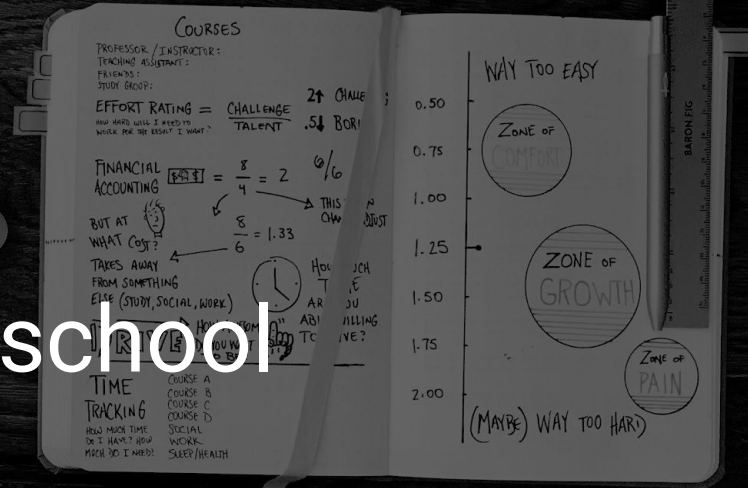 COURSES
PROFESSOR / INSTRUCTOR:
TEACHING ASSISTANT:
FRIENDS:
STUDY GROUP:
EFFORT RATING = CHALLENGE
TALENT
HOW HARD WILL I NEED TO
WORK FOR THE RESULT I WANT?
2↑ CHALLE
.5↓ BORI
FINANCIAL
ACCOUNTING = 8/4 = 2
6/6
THIS
BUT AT
WHAT COST?
8/6 = 1.33
TAKES AWAY
FROM SOMETHING
ELSE (STUDY, SOCIAL, WORK)
TO
school
TIME
TRACKING
HOW MUCH TIME
DO I HAVE? HOW
MUCH DO I NEED?
COURSE A
COURSE B
COURSE C
COURSE D
SOCIAL
WORK
SLEEP/HEALTH
WAY TOO EASY
0.50
ZONE OF
COMFORT
0.75
1.00
1.25
ZONE OF
GROWTH
1.50
1.75
ZONE OF
PAIN
2.00
(MAYBE) WAY TOO HARD
BARON FIG